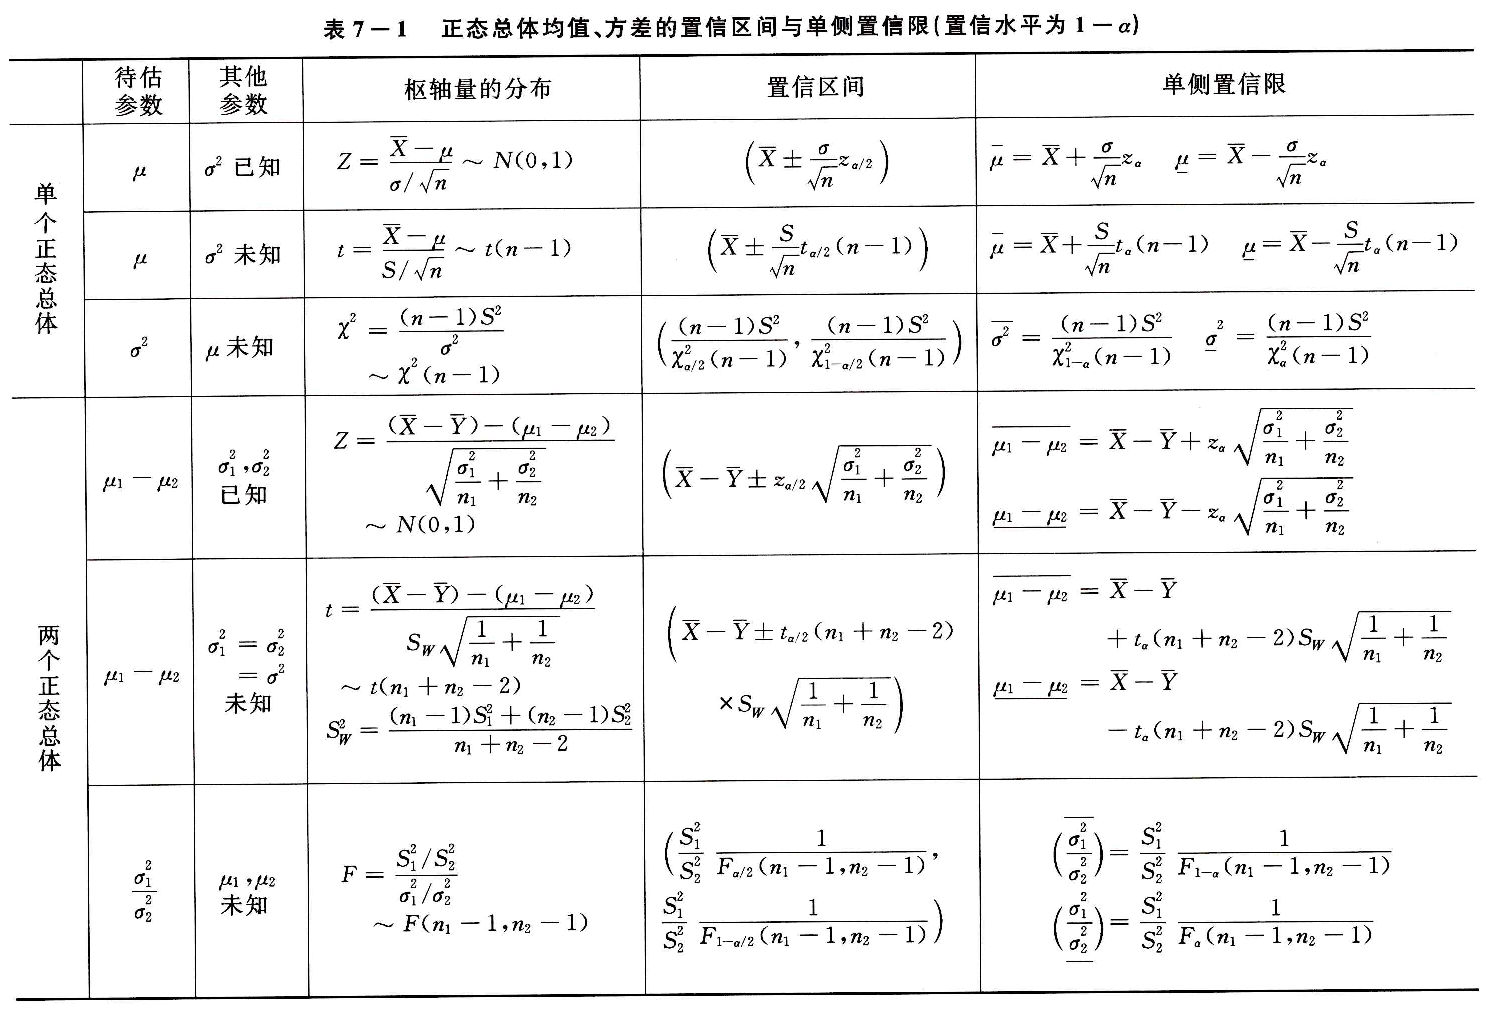 表7－1 正态总体均值、方差的置信区间与单侧置信限(置信水平为 1－α)
待估参数 其他参数 枢轴量的分布 置信区间 单侧置信限
单个正态总体
μ σ² 已知 Z = (X̅ － μ)/(σ/√n) ～ N(0,1) (X̅ ± (σ/√n) z_{α/2}) μ̅ = X̅ + (σ/√n) z_α μ̲ = X̅ － (σ/√n) z_α
μ σ² 未知 t = (X̅ － μ)/(S/√n) ～ t(n－1) (X̅ ± (S/√n) t_{α/2}(n－1)) μ̅ = X̅ + (S/√n) t_α(n－1) μ̲ = X̅ － (S/√n) t_α(n－1)
σ² μ 未知 χ² = (n－1)S²/σ²
～ χ²(n－1)
((n－1)S²/χ²_{α/2}(n－1), (n－1)S²/χ²_{1－α/2}(n－1))
σ̅² = (n－1)S²/χ²_{1－α}(n－1) σ̲² = (n－1)S²/χ²_α(n－1)
两个正态总体
μ₁－μ₂ σ₁²,σ₂²
已知
Z = ((X̅－Y̅)－(μ₁－μ₂))/√(σ₁²/n₁ + σ₂²/n₂)
～ N(0,1)
(X̅－Y̅ ± z_{α/2} √(σ₁²/n₁ + σ₂²/n₂))
\overline{μ₁－μ₂} = X̅－Y̅ + z_α √(σ₁²/n₁ + σ₂²/n₂)
\underline{μ₁－μ₂} = X̅－Y̅ － z_α √(σ₁²/n₁ + σ₂²/n₂)
μ₁－μ₂ σ₁² = σ₂²
= σ²
未知
t = ((X̅－Y̅)－(μ₁－μ₂))/(S_W √(1/n₁ + 1/n₂))
～ t(n₁+n₂－2)
S_W² = ((n₁－1)S₁² + (n₂－1)S₂²)/(n₁+n₂－2)
(X̅－Y̅ ± t_{α/2}(n₁+n₂－2)
×S_W √(1/n₁ + 1/n₂))
\overline{μ₁－μ₂} = X̅－Y̅
+ t_α(n₁+n₂－2)S_W √(1/n₁ + 1/n₂)
\underline{μ₁－μ₂} = X̅－Y̅
－ t_α(n₁+n₂－2)S_W √(1/n₁ + 1/n₂)
σ₁²/σ₂² μ₁,μ₂
未知
F = (S₁²/S₂²)/(σ₁²/σ₂²)
～ F(n₁－1,n₂－1)
((S₁²/S₂²) 1/F_{α/2}(n₁－1,n₂－1),
(S₁²/S₂²) 1/F_{1－α/2}(n₁－1,n₂－1))
\overline{(σ₁²/σ₂²)} = (S₁²/S₂²) 1/F_{1－α}(n₁－1,n₂－1)
\underline{(σ₁²/σ₂²)} = (S₁²/S₂²) 1/F_α(n₁－1,n₂－1)